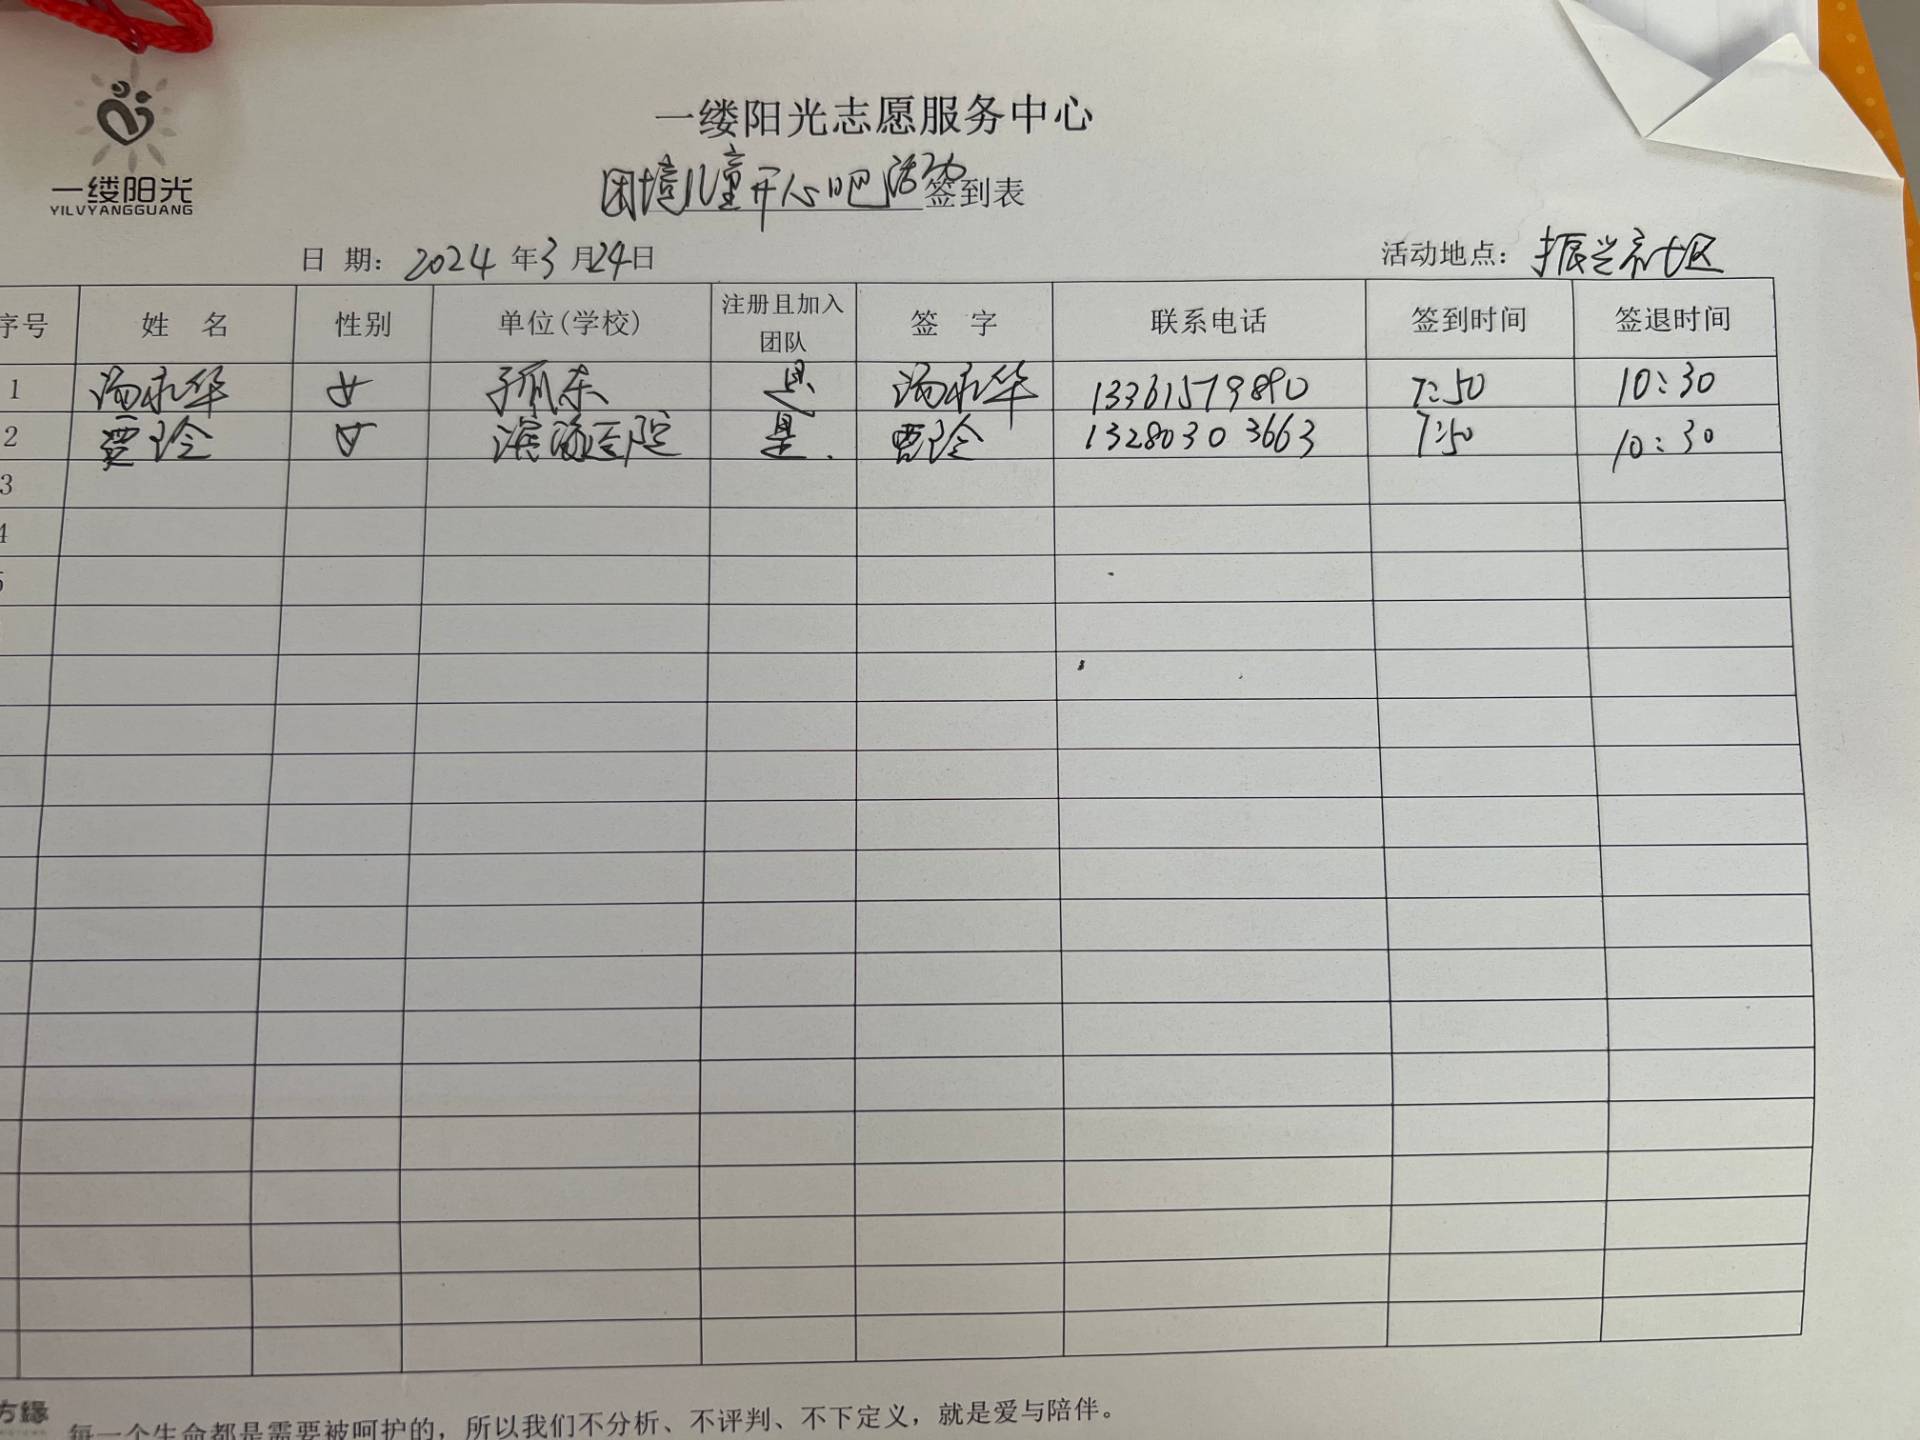 一缕阳光
YILVYANGGUANG
一缕阳光志愿服务中心
困境儿童开心吧活动签到表
日 期：2024年3月24日 活动地点：振兴社区
序号 姓 名 性别 单位(学校) 注册且加入团队 签 字 联系电话 签到时间 签退时间
1 汤永华 女 孤东 是 汤永华 13361579890 7:50 10:30
2 贾玲 女 滨海医院 是. 贾玲 13280303663 7:50 10:30
3
4
5
方缘
每一个生命都是需要被呵护的，所以我们不分析、不评判、不下定义，就是爱与陪伴。